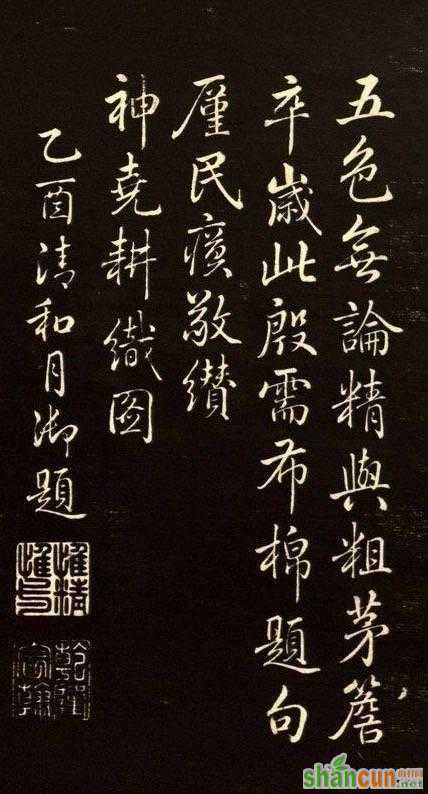 五色無論精與粗茅簷
卒歲此殷需布棉題句
厪民瘼敬纘
神堯耕織圖
乙酉清和月御題
惟精惟一
乾隆宸翰
shancun
.net